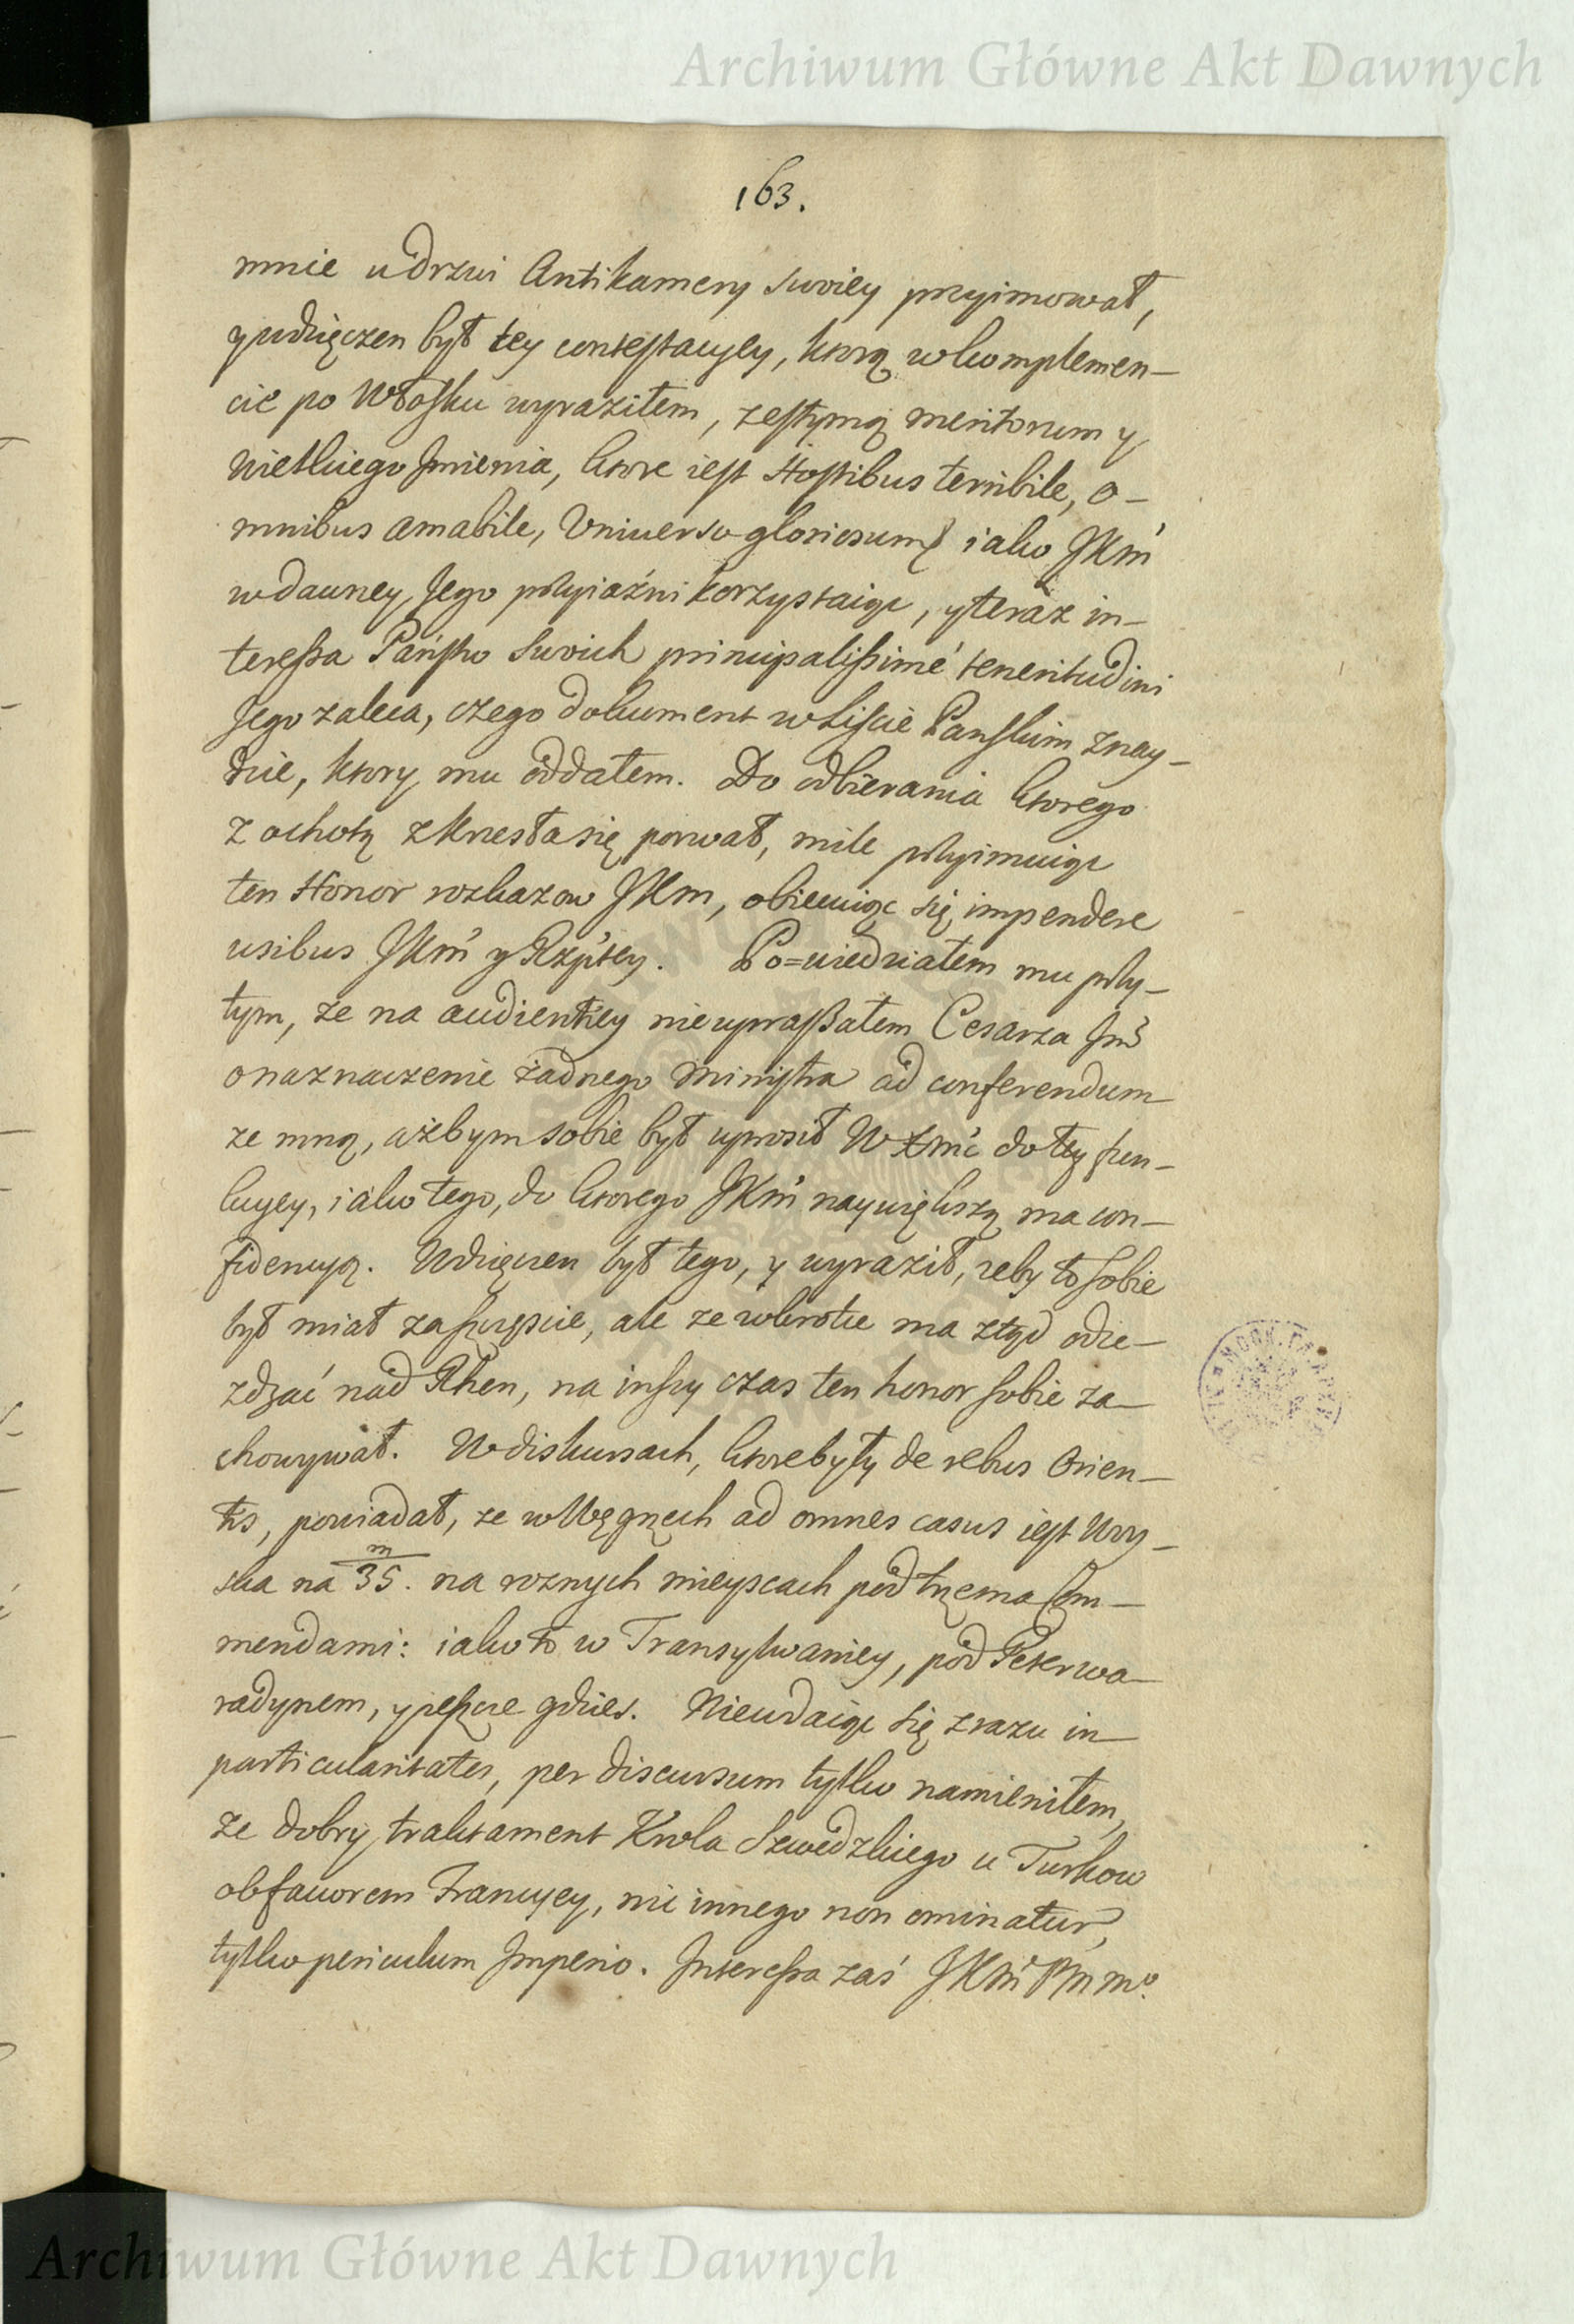 Archiwum Główne Akt Dawnych
163.
mnie u drzwi Antikamery swoiey przyimował,
y wdzięczen był tey contestacyey, ktorą w komplemen-
cie po Włosku wyraziłem, z estymą meritorum y
Wielkiego Jmienia, ktore iest Hostibus terribile, o-
mnibus amabile, Universo gloriosum, iako JKm̃
w dawney Jego przyiaźni korzystaiąc, y teraz in-
teressa Państw swoich principalissimé teneritudini
Jego zaleca, czego dokument w Liście Panskim znay-
dzie, ktory mu oddałem. Do odbierania ktorego
z ochotą z krzesła się porwał, mile przyimuiąc
ten Honor rozkazow JKm, obiecuiąc się impendere
usibus JKm̃ y Rzptey. Po=wiedziałem mu przy-
tym, ze na audientiey nie upraszałem Cesarza Jm̃
o naznaczenie żadnego Ministra ad conferendum
ze mną, ażbym sobie był uprosił W Xmć do tey fun-
kcyey, iako tego, do ktorego JKm̃ naywiększą ma con-
fidencyą. Wdzięczen był tego, y wyraził, zeby to sobie
był miał za szczęscie, ale ze wkrotce ma ztąd odie-
zdzać nad Rhen, na inszy czas ten honor sobie za-
chowywał. W diskursach, ktore były de rebus Orien-
tis, powiadał, ze w Węgrzech ad omnes casus iest Woy-
ska na m/35. na roznych mieyscach pod trzema Com-
mendami: iako to w Transylwaniey, pod Peterwa-
radynem, y jeszcze gdzies. Nie wdaiąc się zrazu in
particularitates, per discursum tylko namieniłem,
ze dobry traktament Krola Szwedzkiego u Turkow
ob favorem Francyey, nic innego non ominatur,
tylko periculum Jmperio. Jnteressa zaś JKm̃ P̃m̃ mº.
Archiwum Główne Akt Dawnych